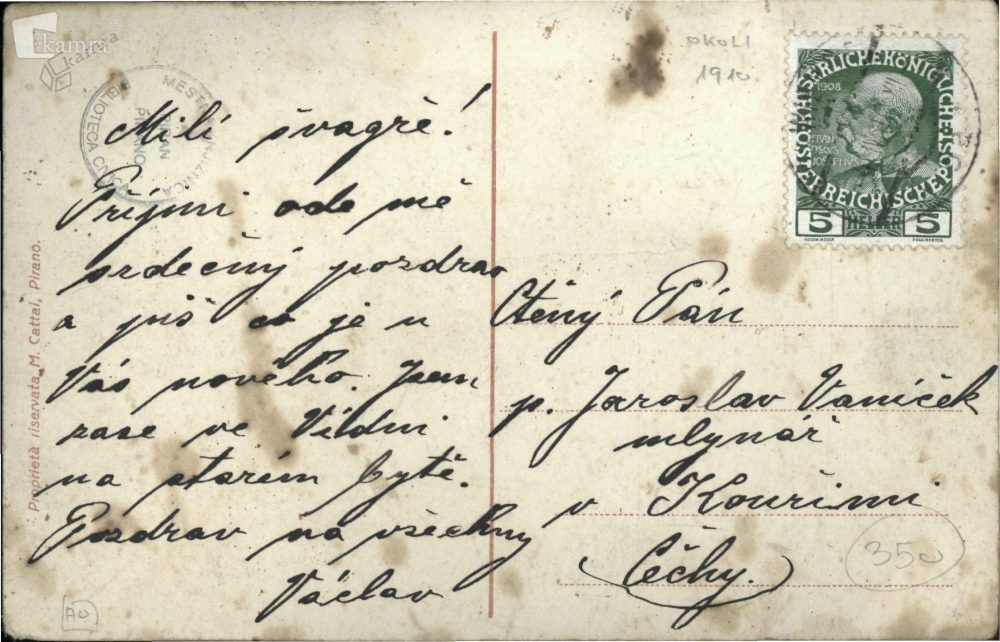 kamra
kamra
Milí švagře!
Přijmi ode mě
srdečný pozdrav
a piš co je u
Vás nového. Jsem
zase ve Vídni
na starém bytě.
Pozdrav na všechny
Václav
Proprietà riservata M. Cattai, Pirano.
MESTNA KNJIŽNICA
PIRAN
PIRANO
BIBLIOTECA CIVICA
OKOLI
1910
KAISERLICHE KÖNIGLICHE POST
ÖSTERREICHISCHE POST
1908
FRAN
CISCVS
JOSEPHVS
5 HELLER 5
Ctěný Pán
p. Jaroslav Vaníček
mlynář
v Kouřimi
Čechy.
350
AO